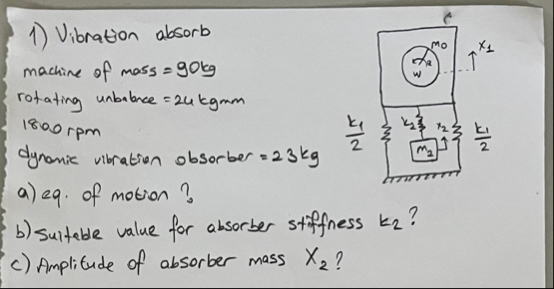 1) Vibration absorb
machine of mass = 90kg
rotating unbalance = 24 kgmm
1800 rpm
dynamic vibration observer = 23kg
a) eq. of motion ?
b) suitable value for absorber stiffness k2 ?
c) Amplitude of absorber mass X2 ?
m0
R
W
x1
k1/2
k2
x2
m2
k1/2